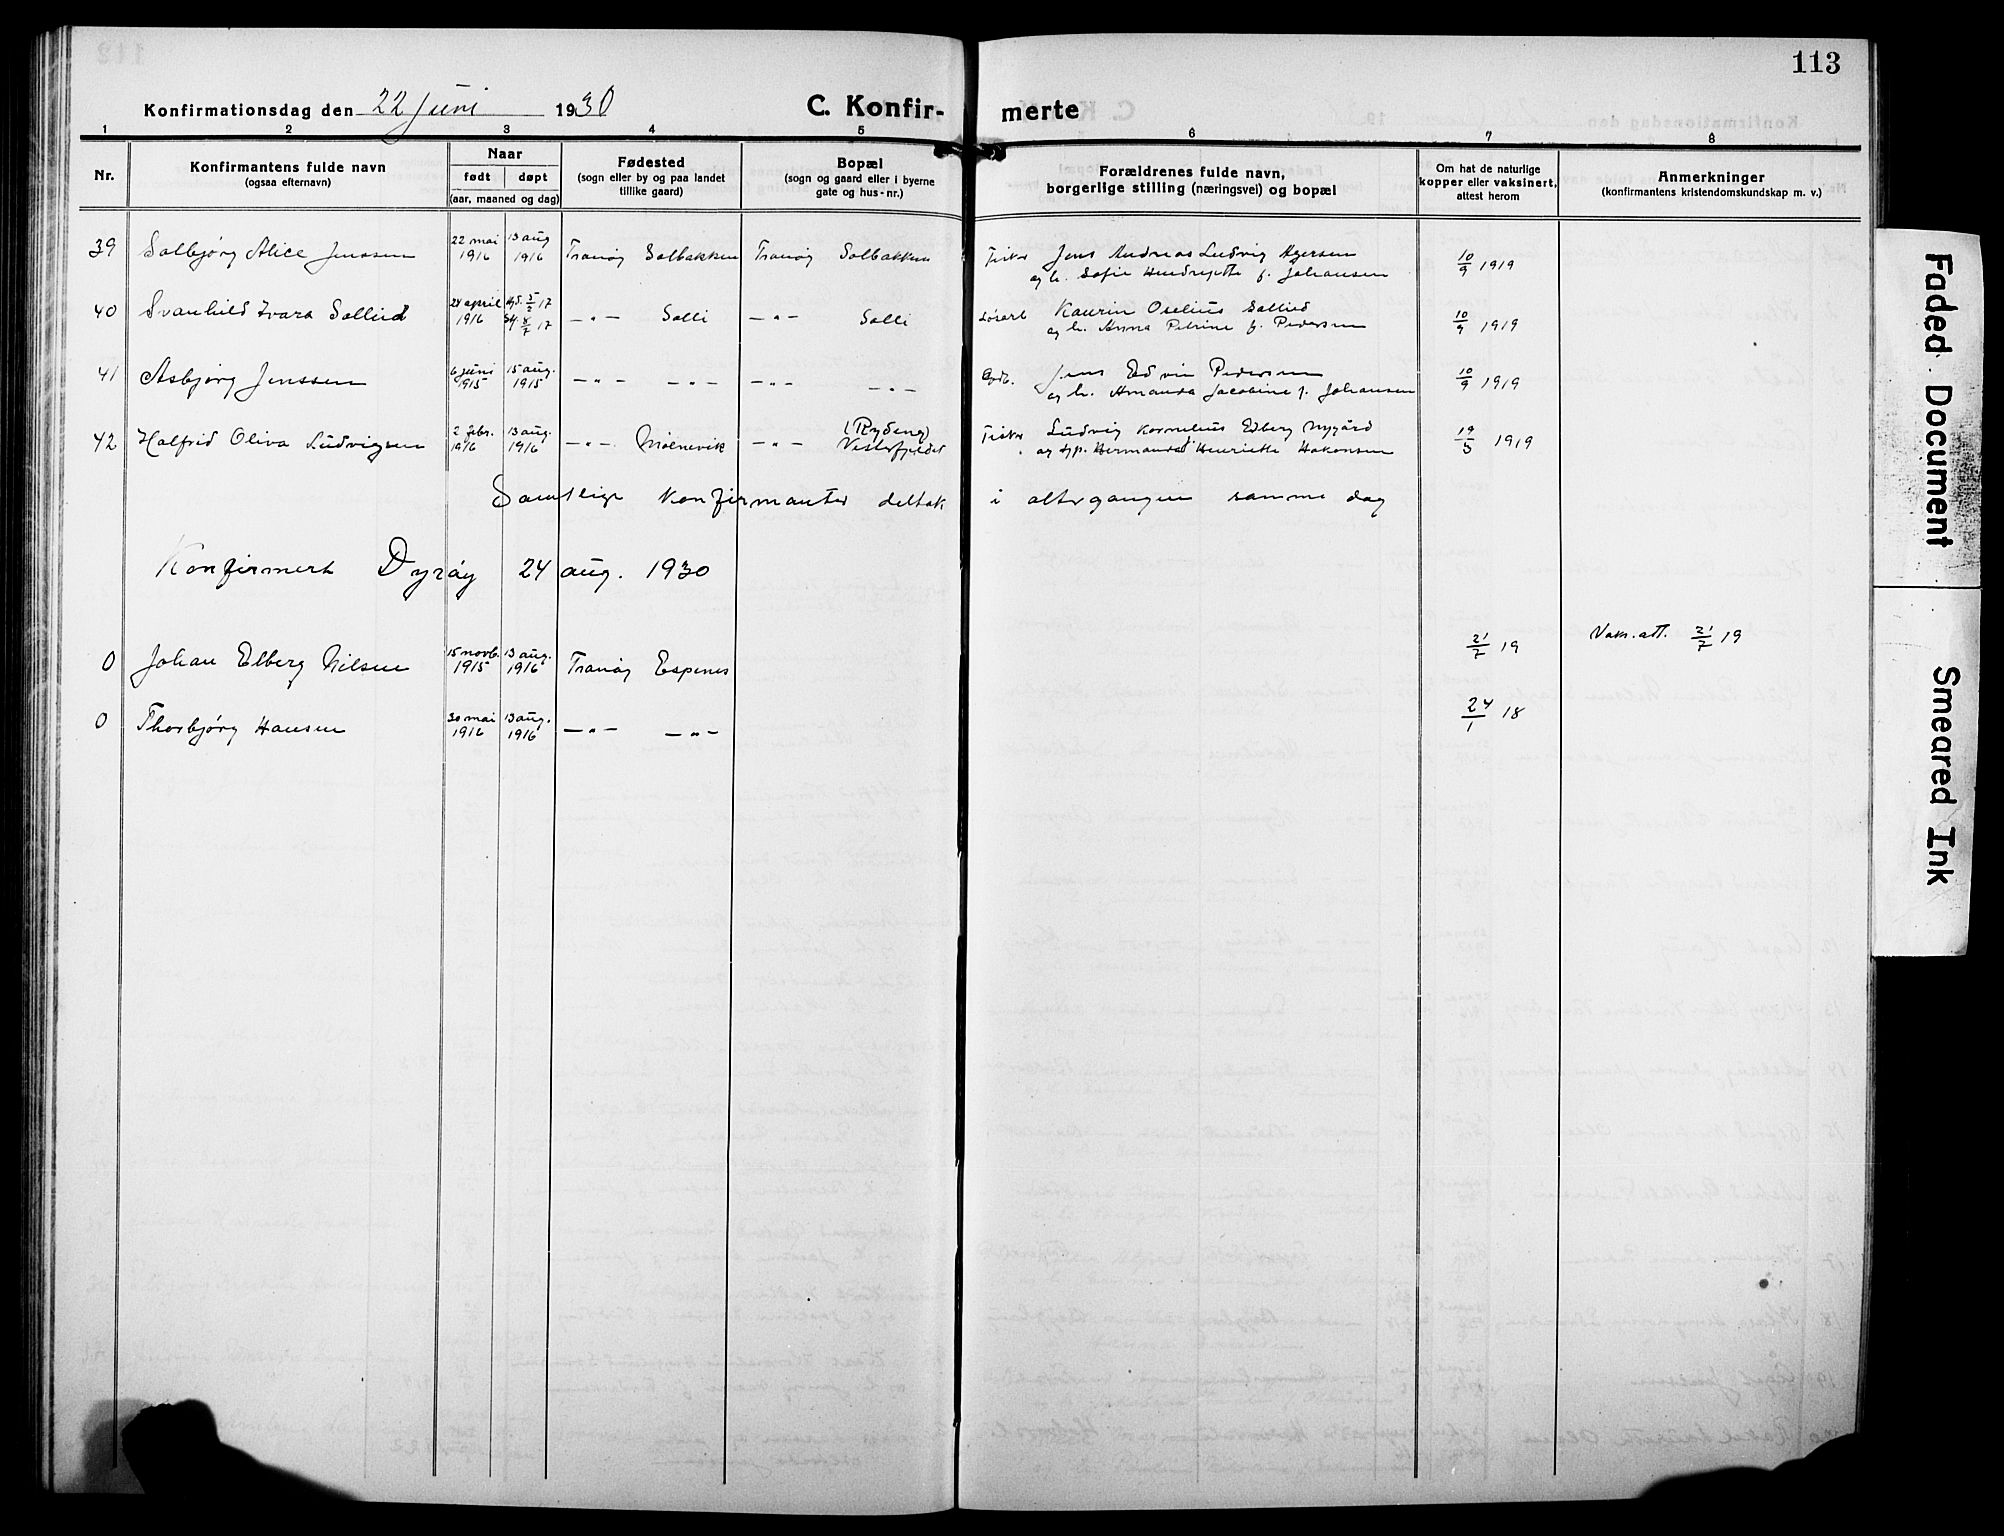 113
Konfirmationsdag den 22 juni 1930
C. Konfir- merte
1 2 3 4 5 6 7 8
Nr.
Konfirmantens fulde navn
(ogsaa efternavn)
Naar
født døpt
(aar, maaned og dag)
Fødested
(sogn eller by og paa landet
tillike gaard)
Bopæl
(sogn og gaard eller i byerne
gate og hus-nr.)
Forældrenes fulde navn,
borgerlige stilling (næringsvei) og bopæl
Om hat de naturlige
kopper eller vaksinert,
attest herom
Anmerkninger
(konfirmantens kristendomskundskap m. v.)
39 Solbjørg Alice Jenssen 22 mai 1916 13 aug 1916 Tranøy Solbakken Tranøy Solbakken Fisker Jens Andreas Ludvig
og h. Sofie f. Johansen 10/9 1919
40 Svanhild Ivara Sollid 24 april 1916 5/2 17 8/7 17 —"— Solli —"— Solli Løsarb Kaurin Oselius Sollied
og h. Anna Petrine f. Pedersen 10/9 1919
41 Asbjørg Jenssen 6 juni 1915 15 aug. 1915 —"— —"— —"— —"— Jens Edvin Pedersen
og h. Amanda Jacobine f. Johansen 10/9 1919
42 Halfrid Oliva Ludvigsen 2 febr. 1916 13 aug. 1916 —"— Molnevik —"— (Rydeng)
Vesterfjeldet Fisker Ludvig Kornelius Edberg Nygård
og Henriette Hakonsen 19/5 1919
Samtlige konfirmanter deltok i altergangen samme dag
Konfirmert Dyrøy 24 aug. 1930
0 Johan Elberg Nilsen 15 novb. 1915 13 aug. 1916 Tranøy Espenes 21/7 19 Vaks.att. 21/7 19
0 Thorbjørg Hansen 30 mai 1916 13 aug. 1916 —"— —"— 24/1 18
Faded Document
Smeared Ink